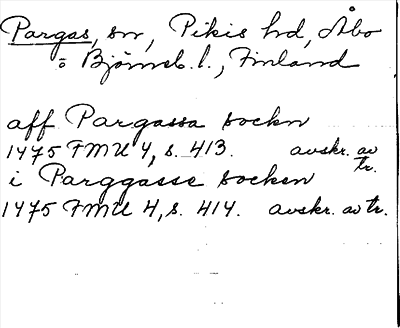 Pargas, sn, Pikis hd, Åbo
o Björneb. l., Finland
aff Pargassa sockn
1475 FMU 4, s. 413. avskr. av tr.
i Parggasse socken
1475 FMU 4, s. 414. avskr. av tr.